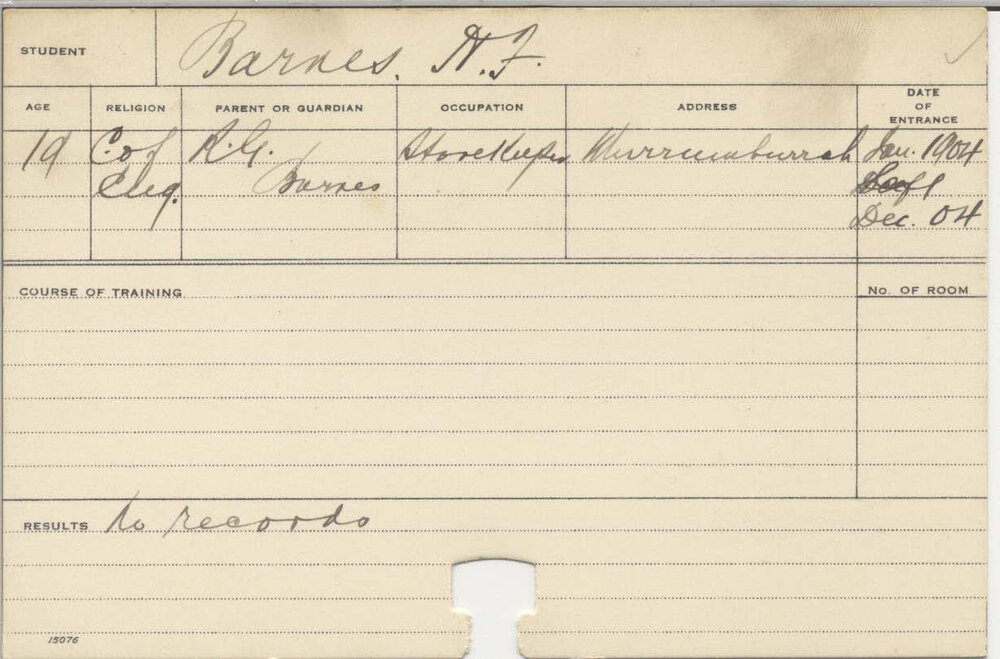 STUDENT Barnes. H.F.
AGE RELIGION PARENT OR GUARDIAN OCCUPATION ADDRESS DATE OF ENTRANCE
19 C. of R.G. Storekeeper Murrumburrah Jan. 1904
Eng. Barnes Left
Dec. 04
COURSE OF TRAINING No. OF ROOM
RESULTS No records
15076